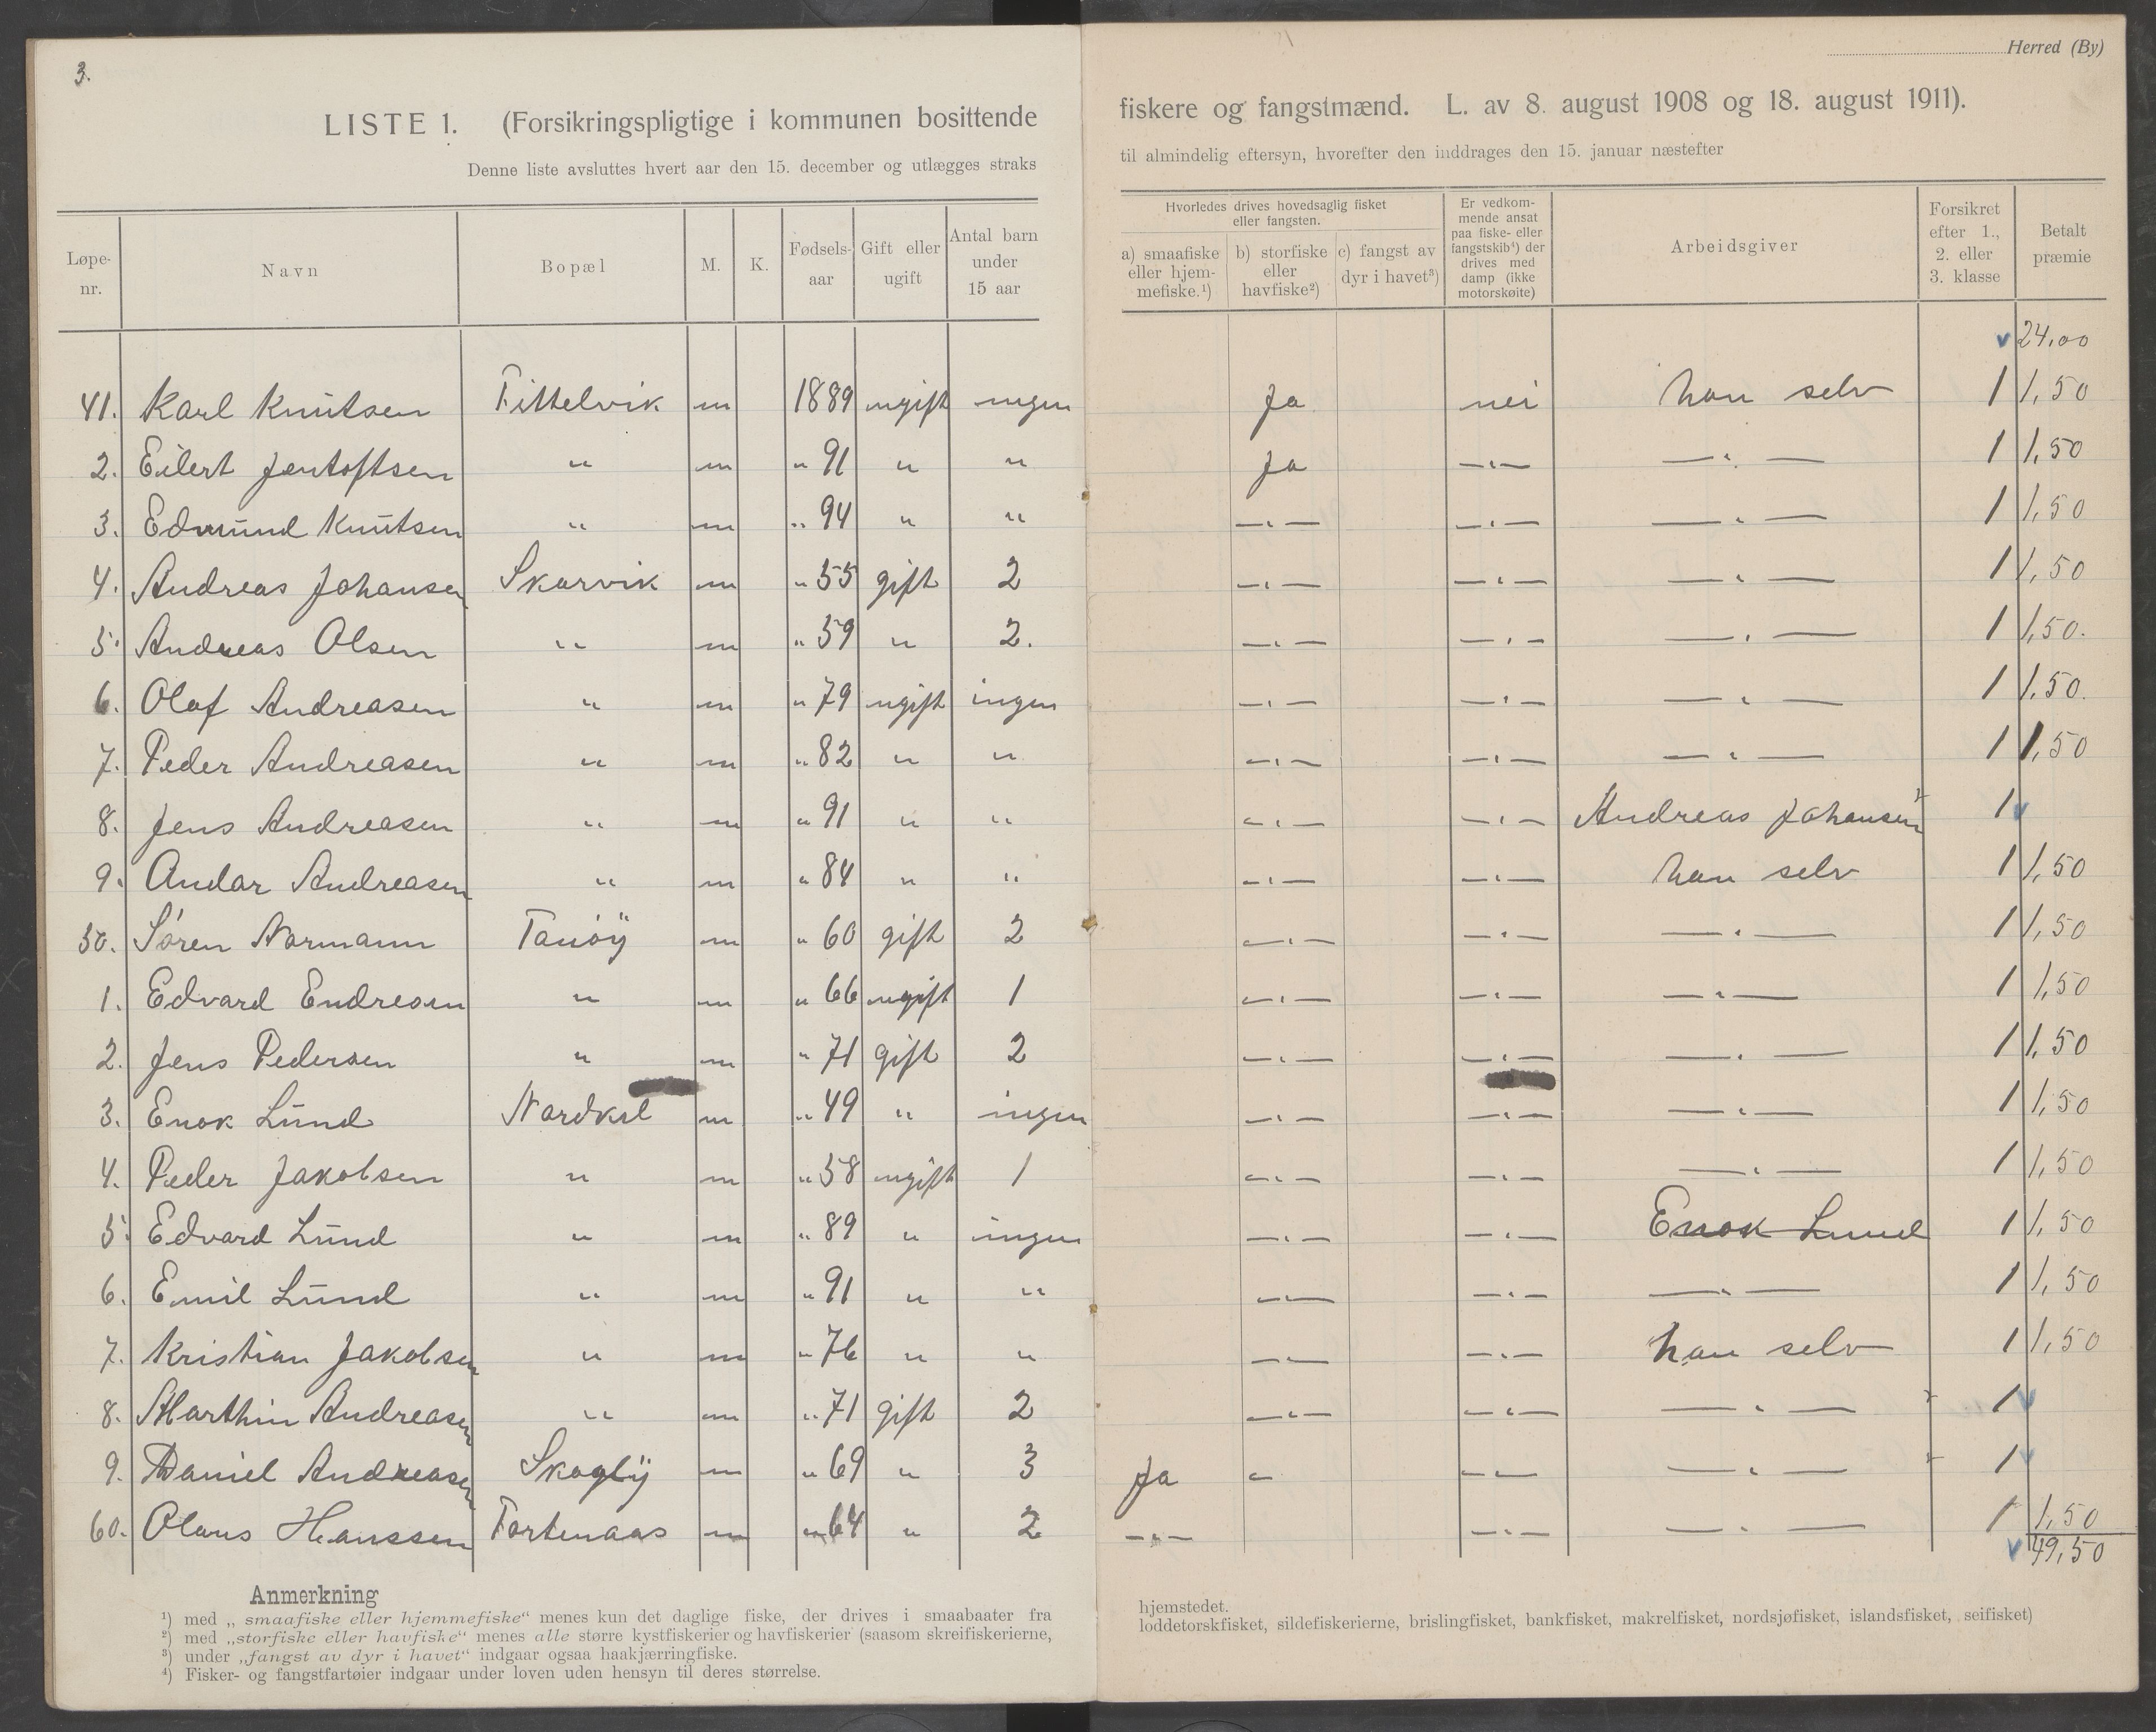 3.
Herred (By)
LISTE 1. (Forsikringspligtige i kommunen bosittende fiskere og fangstmænd. L. av 8. august 1908 og 18. august 1911).
Denne liste avsluttes hvert aar den 15. december og utlægges straks til almindelig eftersyn, hvorefter den inddrages den 15. januar næstefter
Løpe-nr. Navn Bopæl M. K. Fødsels-aar Gift eller ugift Antal barn under 15 aar Hvorledes drives hovedsaglig fisket eller fangsten. a) smaafiske eller hjem-mefiske.¹) b) storfiske eller havfiske²) c) fangst av dyr i havet³) Er vedkom-mende ansat paa fiske- eller fangstskib⁴) der drives med damp (ikke motorskøite) Arbeidsgiver Forsikret efter 1., 2. eller 3. klasse Betalt præmie
24.00
41. Karl Knutsen Fittelvik m 1889 ugift ingen Ja nei han selv 1 1,50
2. Eilert Jentoftsen " m " 91 " " Ja —"— —"— 1 1,50
3. Edmund Knutsen " m " 94 " " —"— —"— —"— 1 1,50
4. Andreas Johansen Skarvik m " 55 gift 2 —"— —"— —"— 1 1,50
5. Andreas Olsen " m " 59 " 2. —"— —"— —"— 1 1,50.
6. Olaf Andreasen " m " 79 ugift ingen —"— —"— —"— 1 1,50.
7. Peder Andreasen " m " 82 " " —"— —"— —"— 1 1,50
8. Jens Andreasen " m " 91 " " —"— —"— Andreas Johansen 1
9. Andar Andreasen " m " 84 " " —"— —"— han selv 1 1,50
50. Søren Normann Tanöÿ m " 60 gift 2 —"— —"— —"— 1 1,50
1. Edvard Endresen " m " 66 ugift 1 —"— —"— —"— 1 1,50
2. Jens Pedersen " m " 71 gift 2 —"— —"— —"— 1 1,50
3. Enok Lund m " 49 " ingen —"— —"— —"— 1 1,50
4. Peder Jakobsen " m " 58 ugift 1 —"— —"— —"— 1 1,50
5 Edvard Lund " m " 89 " ingen —"— —"— Enok Lund 1 1,50
6. Emil Lund " m " 91 " " —"— —"— —"— 1 1,50
7. Kristian Jakobsen " m " 76 " " —"— —"— han selv 1 1,50
8. Marthin Andreasen " m " 71 gift 2 —"— —"— —"— 1
9. Daniel Andreasen m " 69 " 3 Ja — —"— —"— 1
60. Olaus Hanssen Fortenaas m " 64 " 2 —"— —"— —"— 1 1,50
49,50
Anmerkning
¹) med „smaafiske eller hjemmefiske“ menes kun det daglige fiske, der drives i smaabaater fra hjemstedet.
²) med „storfiske eller havfiske“ menes alle større kystfiskerier og havfiskerier (saasom skreifiskerierne, loddetorskfisket, sildefiskerierne, brislingfisket, bankfisket, makrelfisket, nordsjøfisket, islandsfisket, seifisket)
³) under „fangst av dyr i havet“ indgaar ogsaa haakjærringfiske.
⁴) Fisker- og fangstfartøier indgaar under loven uden hensyn til deres størrelse.